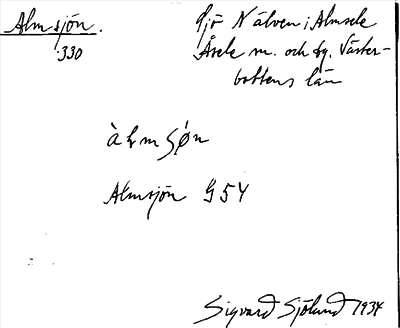 Almsjön.
330
Sjö N älven i Almsele
Åsele sn. och tg. Väster-
bottens län
àlmsǿn
Almsjön G54
Sigvard Sjölund 1934